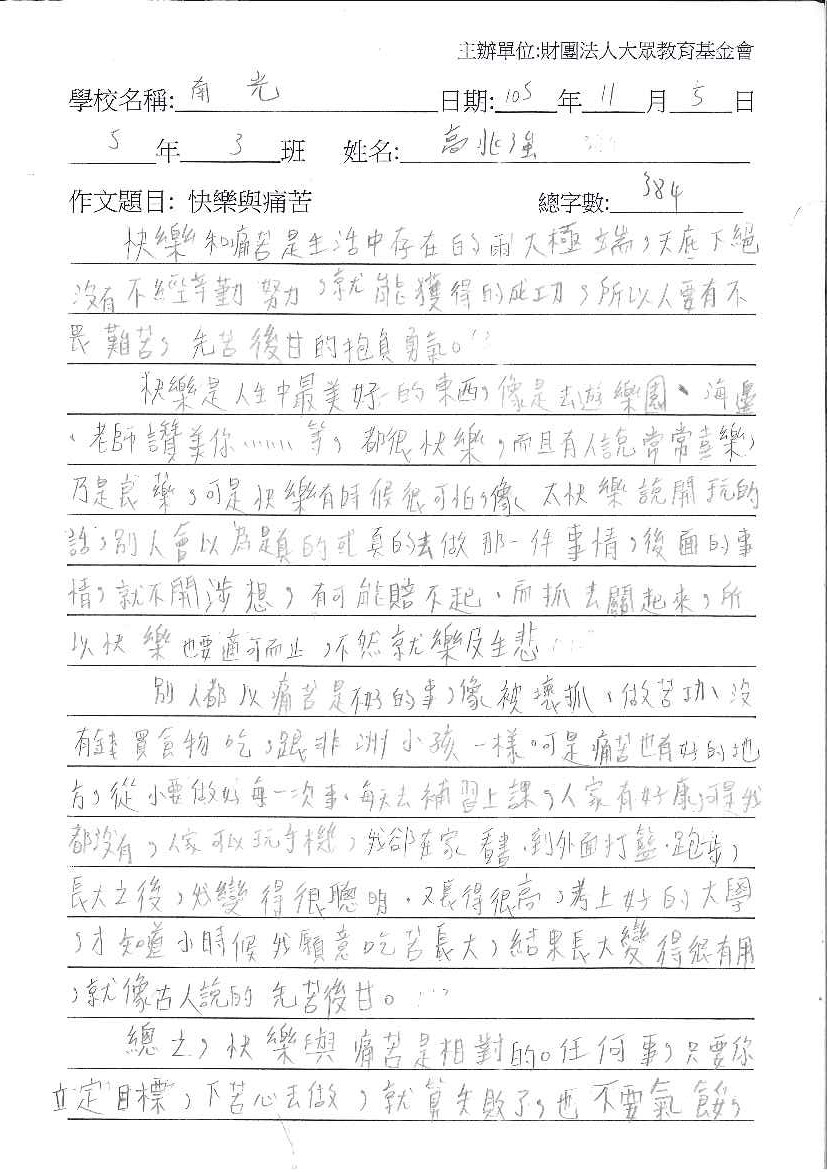 主辦單位:財團法人大眾教育基金會
學校名稱: 南光 日期: 105 年 11 月 5 日
5 年 3 班 姓名: 高兆強
作文題目: 快樂與痛苦 總字數: 384
快樂和痛苦是生活中存在的兩大極端,天底下絕
沒有不經辛勤努力,就能獲得的成功,所以人要有不
畏難苦,先苦後甘的抱負勇氣。
快樂是人生中最美好的東西,像是去遊樂園、海邊
、老師讚美你……等,都很快樂,而且有人說常常喜樂,
乃是良藥,可是快樂有時候很可怕,像太快樂說開玩的
話,別人會以為是真的或真的去做那一件事情,後面的事
情,就不開涉想,有可能賠不起、而抓去關起來,所
以快樂也要適可而止,不然就樂及生悲
別人都以痛苦是不好的事,像被壞抓、做苦功、沒
有錢買食物吃,跟非洲小孩一樣,可是痛苦也有好的地
方,從小要做好每一次事、每天去補習上課,人家有好康,可是我
都沒有,人家可以玩手機,我卻在家看書、到外面打籃、跑步,
長大之後,我變得很聰明、又長得很高,考上好的大學
,才知道小時候我願意吃苦長大,結果長大變得很有用
,就像古人說的先苦後甘。
總之,快樂與痛苦是相對的。任何事,只要你
立定目標,下苦心去做,就算失敗了,也不要氣餒,